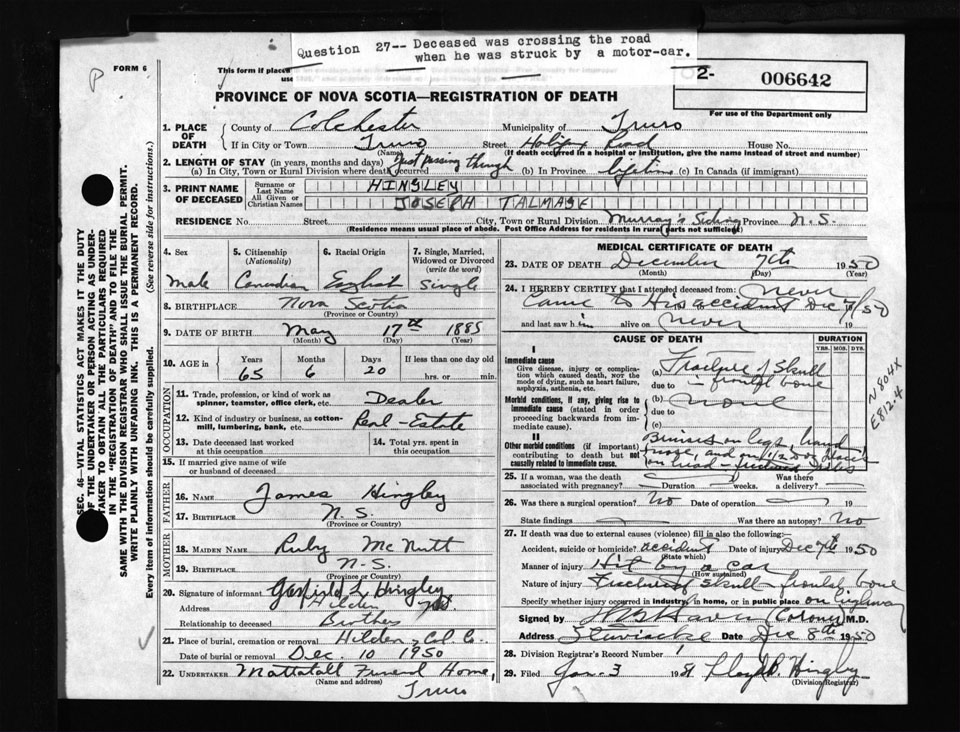 Question 27-- Deceased was crossing the road
when he was struck by a motor-car.
P
FORM 6
This form if placed
use
2- 006642
For use of the Department only
PROVINCE OF NOVA SCOTIA—REGISTRATION OF DEATH
1. PLACE OF DEATH
County of Colchester Municipality of Truro
If in City or Town Truro Street Halifax Road House No.
(Name) (If death occurred in a hospital or institution, give the name instead of street and number)
2. LENGTH OF STAY (in years, months and days)
(a) In City, Town or Rural Division where death occurred Just passing through (b) In Province lifetime (c) In Canada (if immigrant)
3. PRINT NAME OF DECEASED
Surname or Last Name HINGLEY
All Given or Christian Names JOSEPH TALMAGE
RESIDENCE No. Street City, Town or Rural Division Murray's Siding Province N.S.
(Residence means usual place of abode. Post Office Address for residents in rural parts not sufficient)
4. Sex Male
5. Citizenship (Nationality) Canadian
6. Racial Origin English
7. Single, Married, Widowed or Divorced (write the word) Single
8. BIRTHPLACE Nova Scotia
(Province or Country)
9. DATE OF BIRTH May 17th 1885
(Month) (Day) (Year)
10. AGE in Years 65 Months 6 Days 20 If less than one day old hrs. or min.
OCCUPATION
11. Trade, profession, or kind of work as spinner, teamster, office clerk, etc. Dealer
12. Kind of industry or business, as cotton-mill, lumbering, bank, etc. Real-Estate
13. Date deceased last worked at this occupation
14. Total yrs. spent in this occupation
15. If married give name of wife or husband of deceased
FATHER
16. NAME James Hingley
17. BIRTHPLACE N.S.
(Province or Country)
MOTHER
18. MAIDEN NAME Ruby McNutt
19. BIRTHPLACE N.S.
(Province or Country)
20. Signature of informant Hingley
Address Hilden
Relationship to deceased Brother
21. Place of burial, cremation or removal Hilden, Col. Co.
Date of burial or removal Dec. 10 1950
22. UNDERTAKER Mattatall Funeral Home,
(Name and address)
Truro
MEDICAL CERTIFICATE OF DEATH
23. DATE OF DEATH December 7th 1950
(Month) (Day) (Year)
24. I HEREBY CERTIFY that I attended deceased from: never
Came to His accident Dec 7/50
and last saw him alive on never 19
CAUSE OF DEATH
DURATION
YRS. MOS. DYS.
I
Immediate cause
Give disease, injury or complication which caused death, NOT the mode of dying, such as heart failure, asphyxia, asthenia, etc.
(a) Fracture of Skull
due to in frontal bone
Morbid conditions, if any, giving rise to immediate cause (stated in order proceeding backwards from immediate cause).
(b) none
due to
(c)
II
Other morbid conditions (if important) contributing to death but not causally related to immediate cause.
Bruises on legs, hand
nose, and on
on head -
N 804X
E812.4
25. If a woman, was the death associated with pregnancy? Duration weeks. Was there a delivery?
26. Was there a surgical operation? No Date of operation 19
State findings Was there an autopsy? No
27. If death was due to external causes (violence) fill in also the following:
Accident, suicide or homicide? accident Date of injury Dec 7th 1950
(State which)
Manner of injury Hit by a car
(How sustained)
Nature of injury Fracture of Skull frontal bone
Specify whether injury occurred in industry, in home, or in public place on highway
Signed by (Coroner) M.D.
Address Stewiacke Date Dec 8th 1950
28. Division Registrar's Record Number 1
29. Filed Jan. 3 1951 Lloyd D. Hingley
(Division Registrar)
SEC. 46—VITAL STATISTICS ACT MAKES IT THE DUTY
OF THE UNDERTAKER OR PERSON ACTING AS UNDER-
TAKER TO OBTAIN ALL THE PARTICULARS REQUIRED
IN THE "REGISTRATION OF DEATH" AND TO FILE THE
SAME WITH THE DIVISION REGISTRAR WHO SHALL ISSUE THE BURIAL PERMIT.
WRITE PLAINLY WITH UNFADING INK. THIS IS A PERMANENT RECORD.
Every item of information should be carefully supplied. (See reverse side for instructions.)